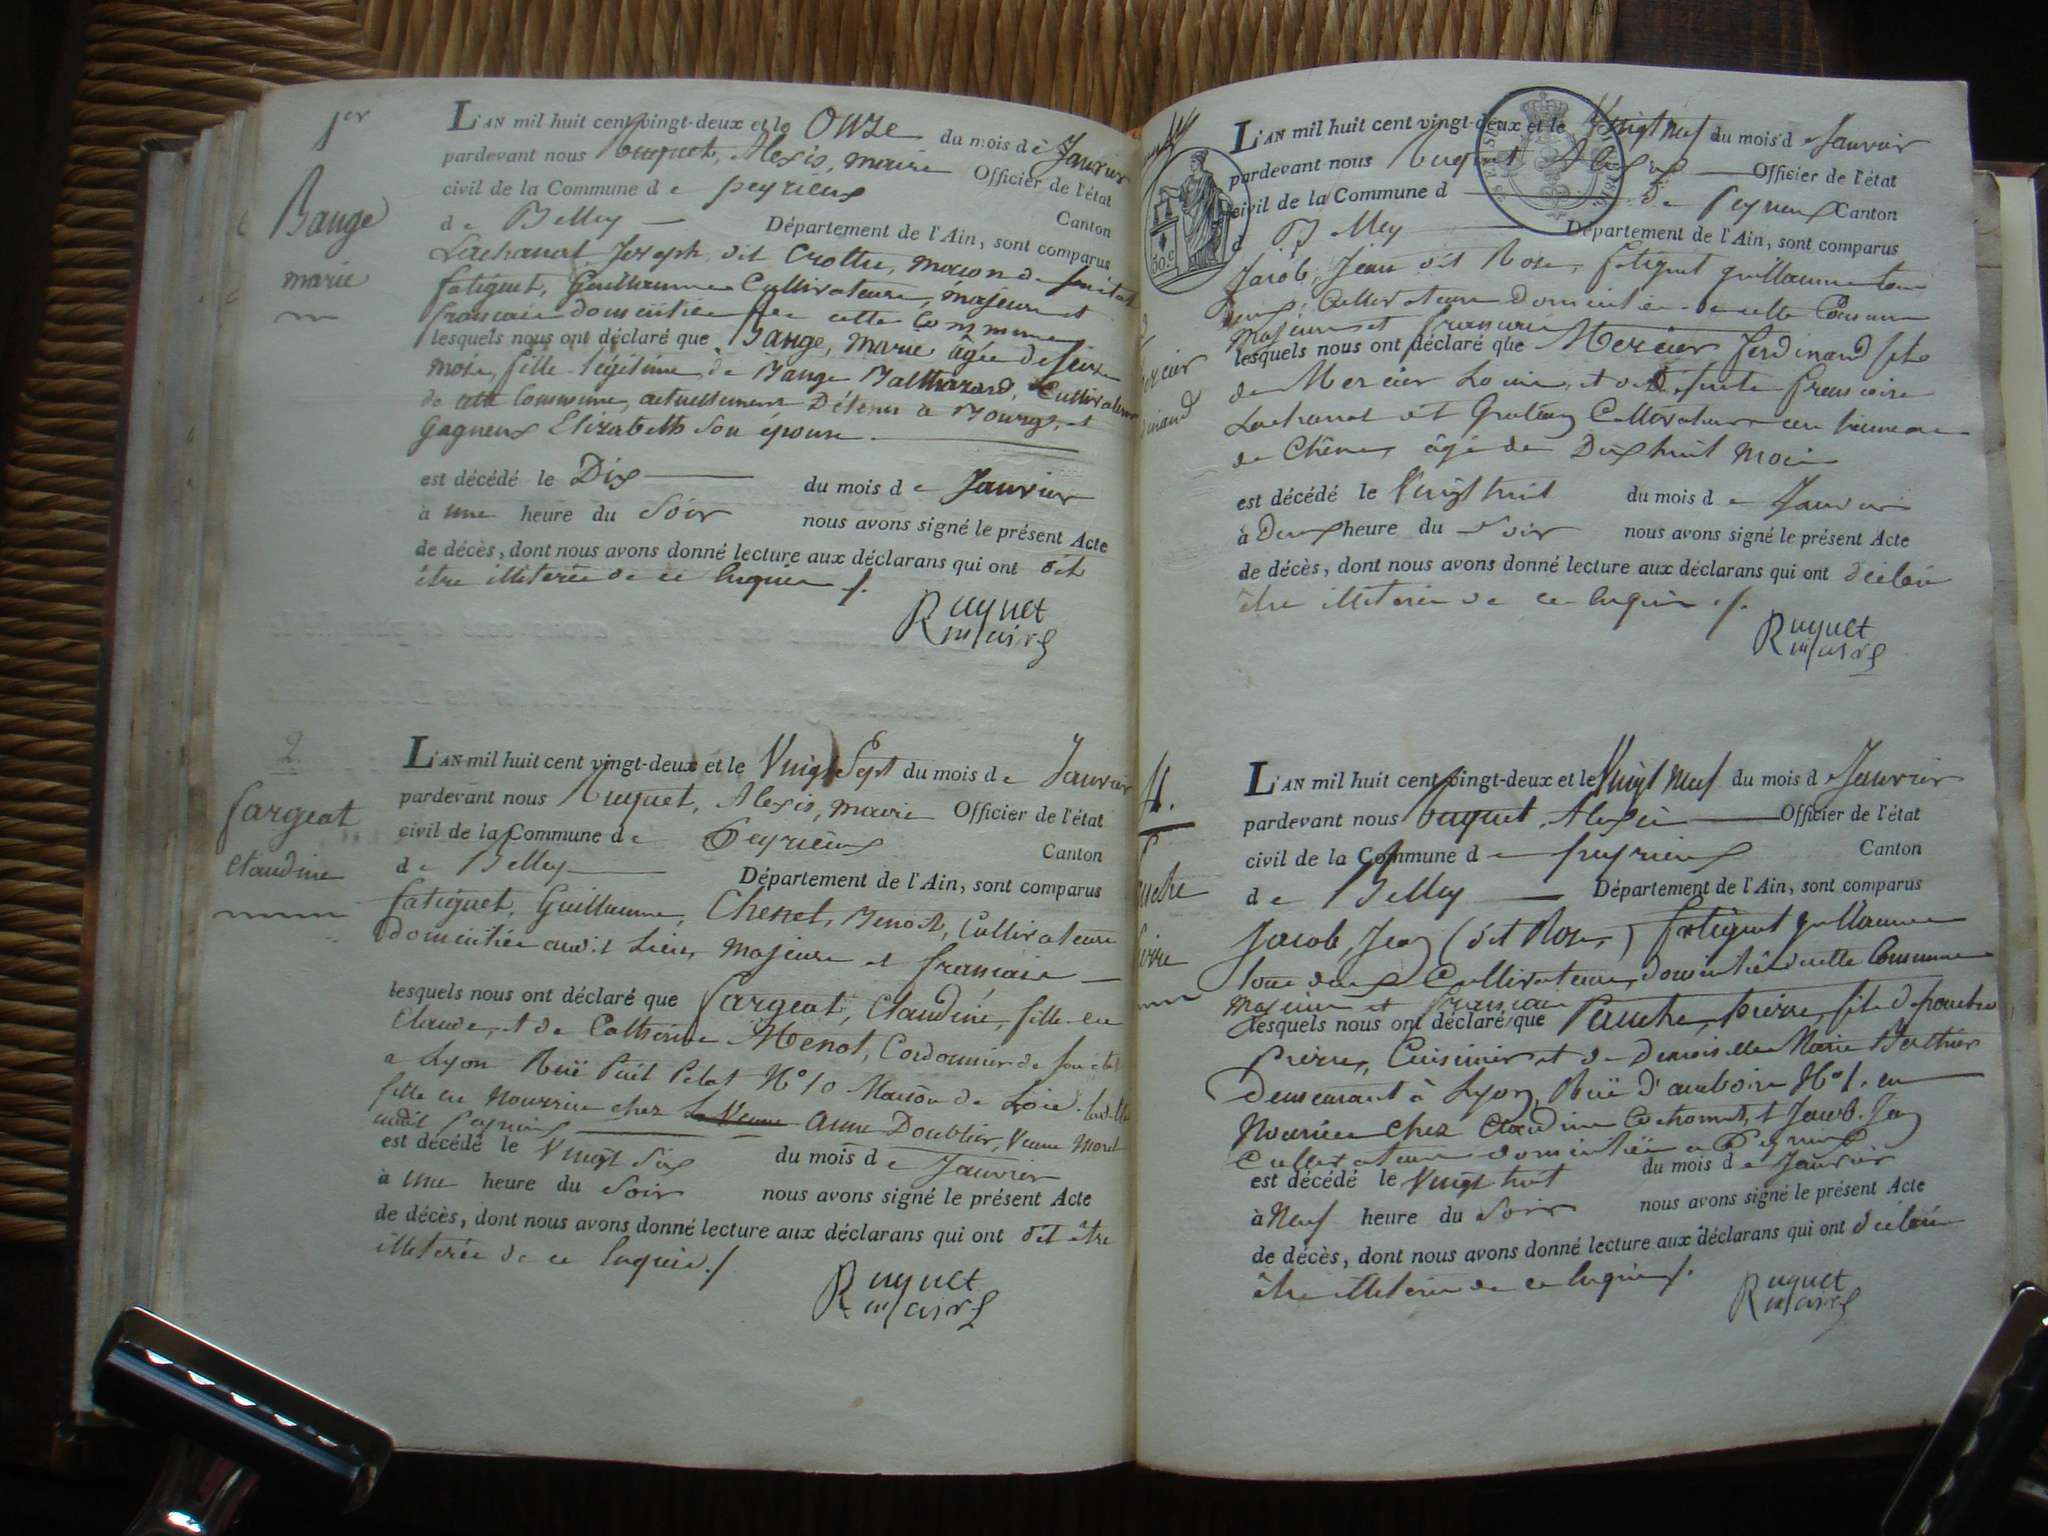 1er
Bauge
marie
L'AN mil huit cent vingt-deux et le Onze du mois de Janvier
pardevant nous Ruquet, Alexis, maire Officier de l'état
civil de la Commune de peyrieux Canton
de Belley Département de l'Ain, sont comparus
Lachanat Joseph dit Crottu, maçon de son état
fatiguet, Guillaume Cultivateur, majeurs et
français domiciliés de cette Commune
lesquels nous ont déclaré que Bauge, Marie âgée de seize
mois, fille légitime de Bauge Balthazard, Cultivateur
de cette Commune, actuellement Détenu à Bourg, et
Gagneux Elizabeth son épouse.
est décédé le Dix du mois de Janvier
à une heure du Soir nous avons signé le présent Acte
de décès, dont nous avons donné lecture aux déclarans qui ont dit
être illeterés de ce enquis /.
Ruquet
maire
2
Sargeat
Claudine
L'AN mil huit cent vingt-deux et le Vingt Sept du mois de Janvier
pardevant nous Ruquet, Alexis, maire Officier de l'état
civil de la Commune de Peyrieux Canton
de Belley Département de l'Ain, sont comparus
fatiguet, Guillaume, Chenet, Benoit, Cultivateurs
domiciliés audit Lieu, majeurs et français
lesquels nous ont déclaré que Sargeat, Claudine, fille de
Claude, et de Catherine Menot, Cordonnier de son état
a Lyon Rue Puit Pelot N° 10 Maison de Loire
fille en Nourrice chez La Veuve Anne Doublier, Veuve Moret
audit Peyrieux
est décédé le Vingt Six du mois de Janvier
à une heure du Soir nous avons signé le présent Acte
de décès, dont nous avons donné lecture aux déclarans qui ont dit être
illeterés de ce enquis /
Ruquet
maire
50 c.
Mercier
Ferdinand
L'AN mil huit cent vingt-deux et le Vingt Neuf du mois de Janvier
pardevant nous Ruquet Alexis Officier de l'état
civil de la Commune d de Peyrieux Canton
d Belley Département de l'Ain, sont comparus
Jacob, Jean dit Rose, fatiguet guillaume tous
deux Cultivateurs domiciliés de cette Commune
Majeurs et français
lesquels nous ont déclaré que Mercier Ferdinand fils
de Mercier Louis, et de Défunte françoise
Lachanat dit Cultivateur au hameau
de Chêne, âgé de Dix huit Mois
est décédé le Vingt huit du mois de Janvier
à Deux heure du Soir nous avons signé le présent Acte
de décès, dont nous avons donné lecture aux déclarans qui ont déclaré
être illeterés de ce enquis /.
Ruquet
maire
4.
L'AN mil huit cent vingt-deux et le Vingt Neuf du mois de Janvier
pardevant nous Ruquet Alexis Officier de l'état
civil de la Commune de peyrieux Canton
de Belley Département de l'Ain, sont comparus
Jacob, Jean (dit Rose,) fatiguet guillaume
tous deux Cultivateurs, domiciliés de cette Commune
Majeurs et français
lesquels nous ont déclaré que Pauche, pierre, fils de
Pierre, Cuisinier et de Demoiselle Marie Berthier
Demeurant à Lyon, Rue d'amboise N° 1. en
Nourrice chez Claudine et Jacob Jean
Cultivateurs domiciliés a Peyrieux
est décédé le Vingt huit du mois de Janvier
à Neuf heure du Soir nous avons signé le présent Acte
de décès, dont nous avons donné lecture aux déclarans qui ont déclaré
être illeterés de ce enquis /.
Ruquet
maire